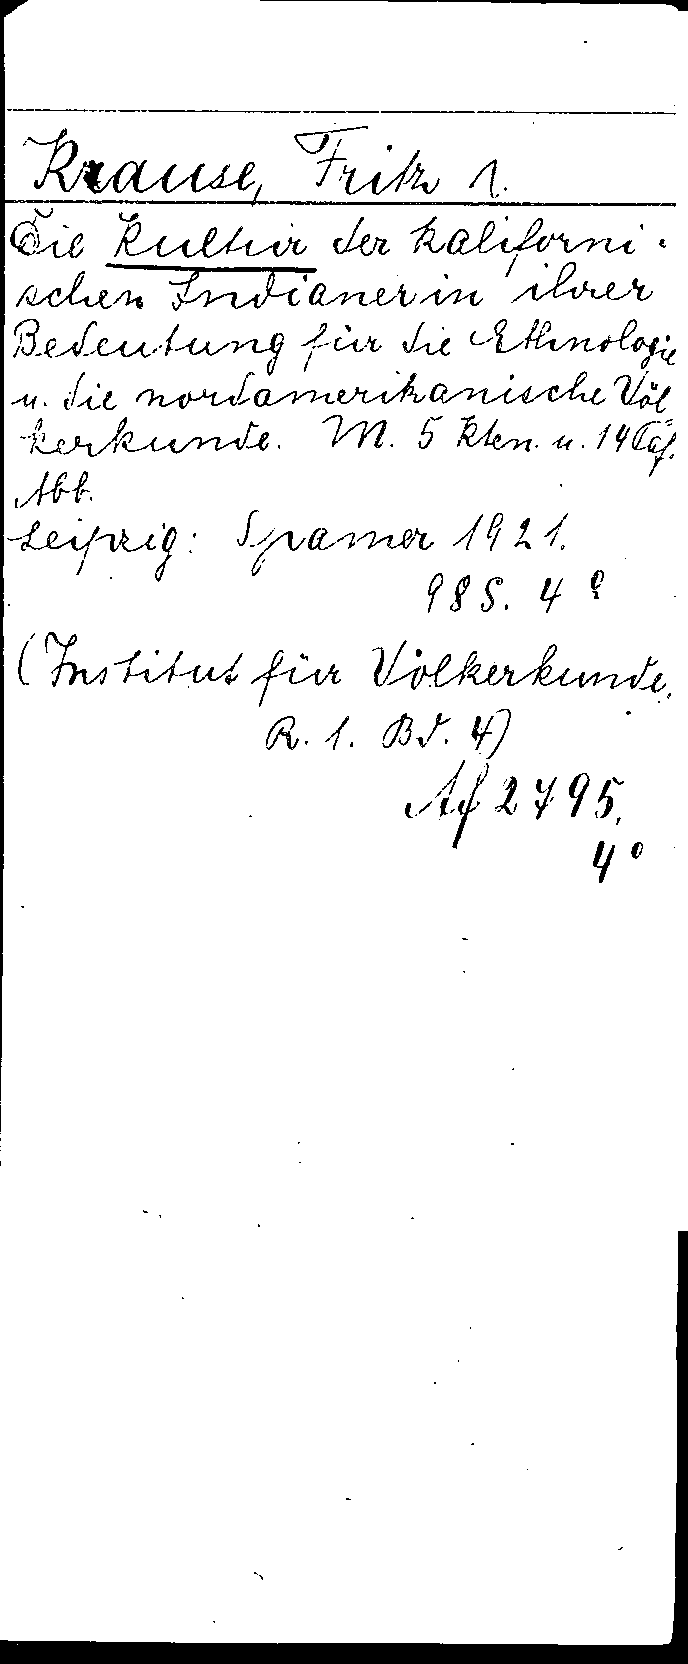 Krause, Fritz 1.
Die Kultur der kaliforni-
schen Indianer in ihrer
Bedeutung für die Ethnologie
u. die nordamerikanische Völ
kerkunde. M. 5 Kten. u. 14 Taf.
Abb.
Leipzig: Spamer 1921.
98 S. 4°
(Institut für Völkerkunde.
R. 1. Bd. 4)
Af 2795,
4°